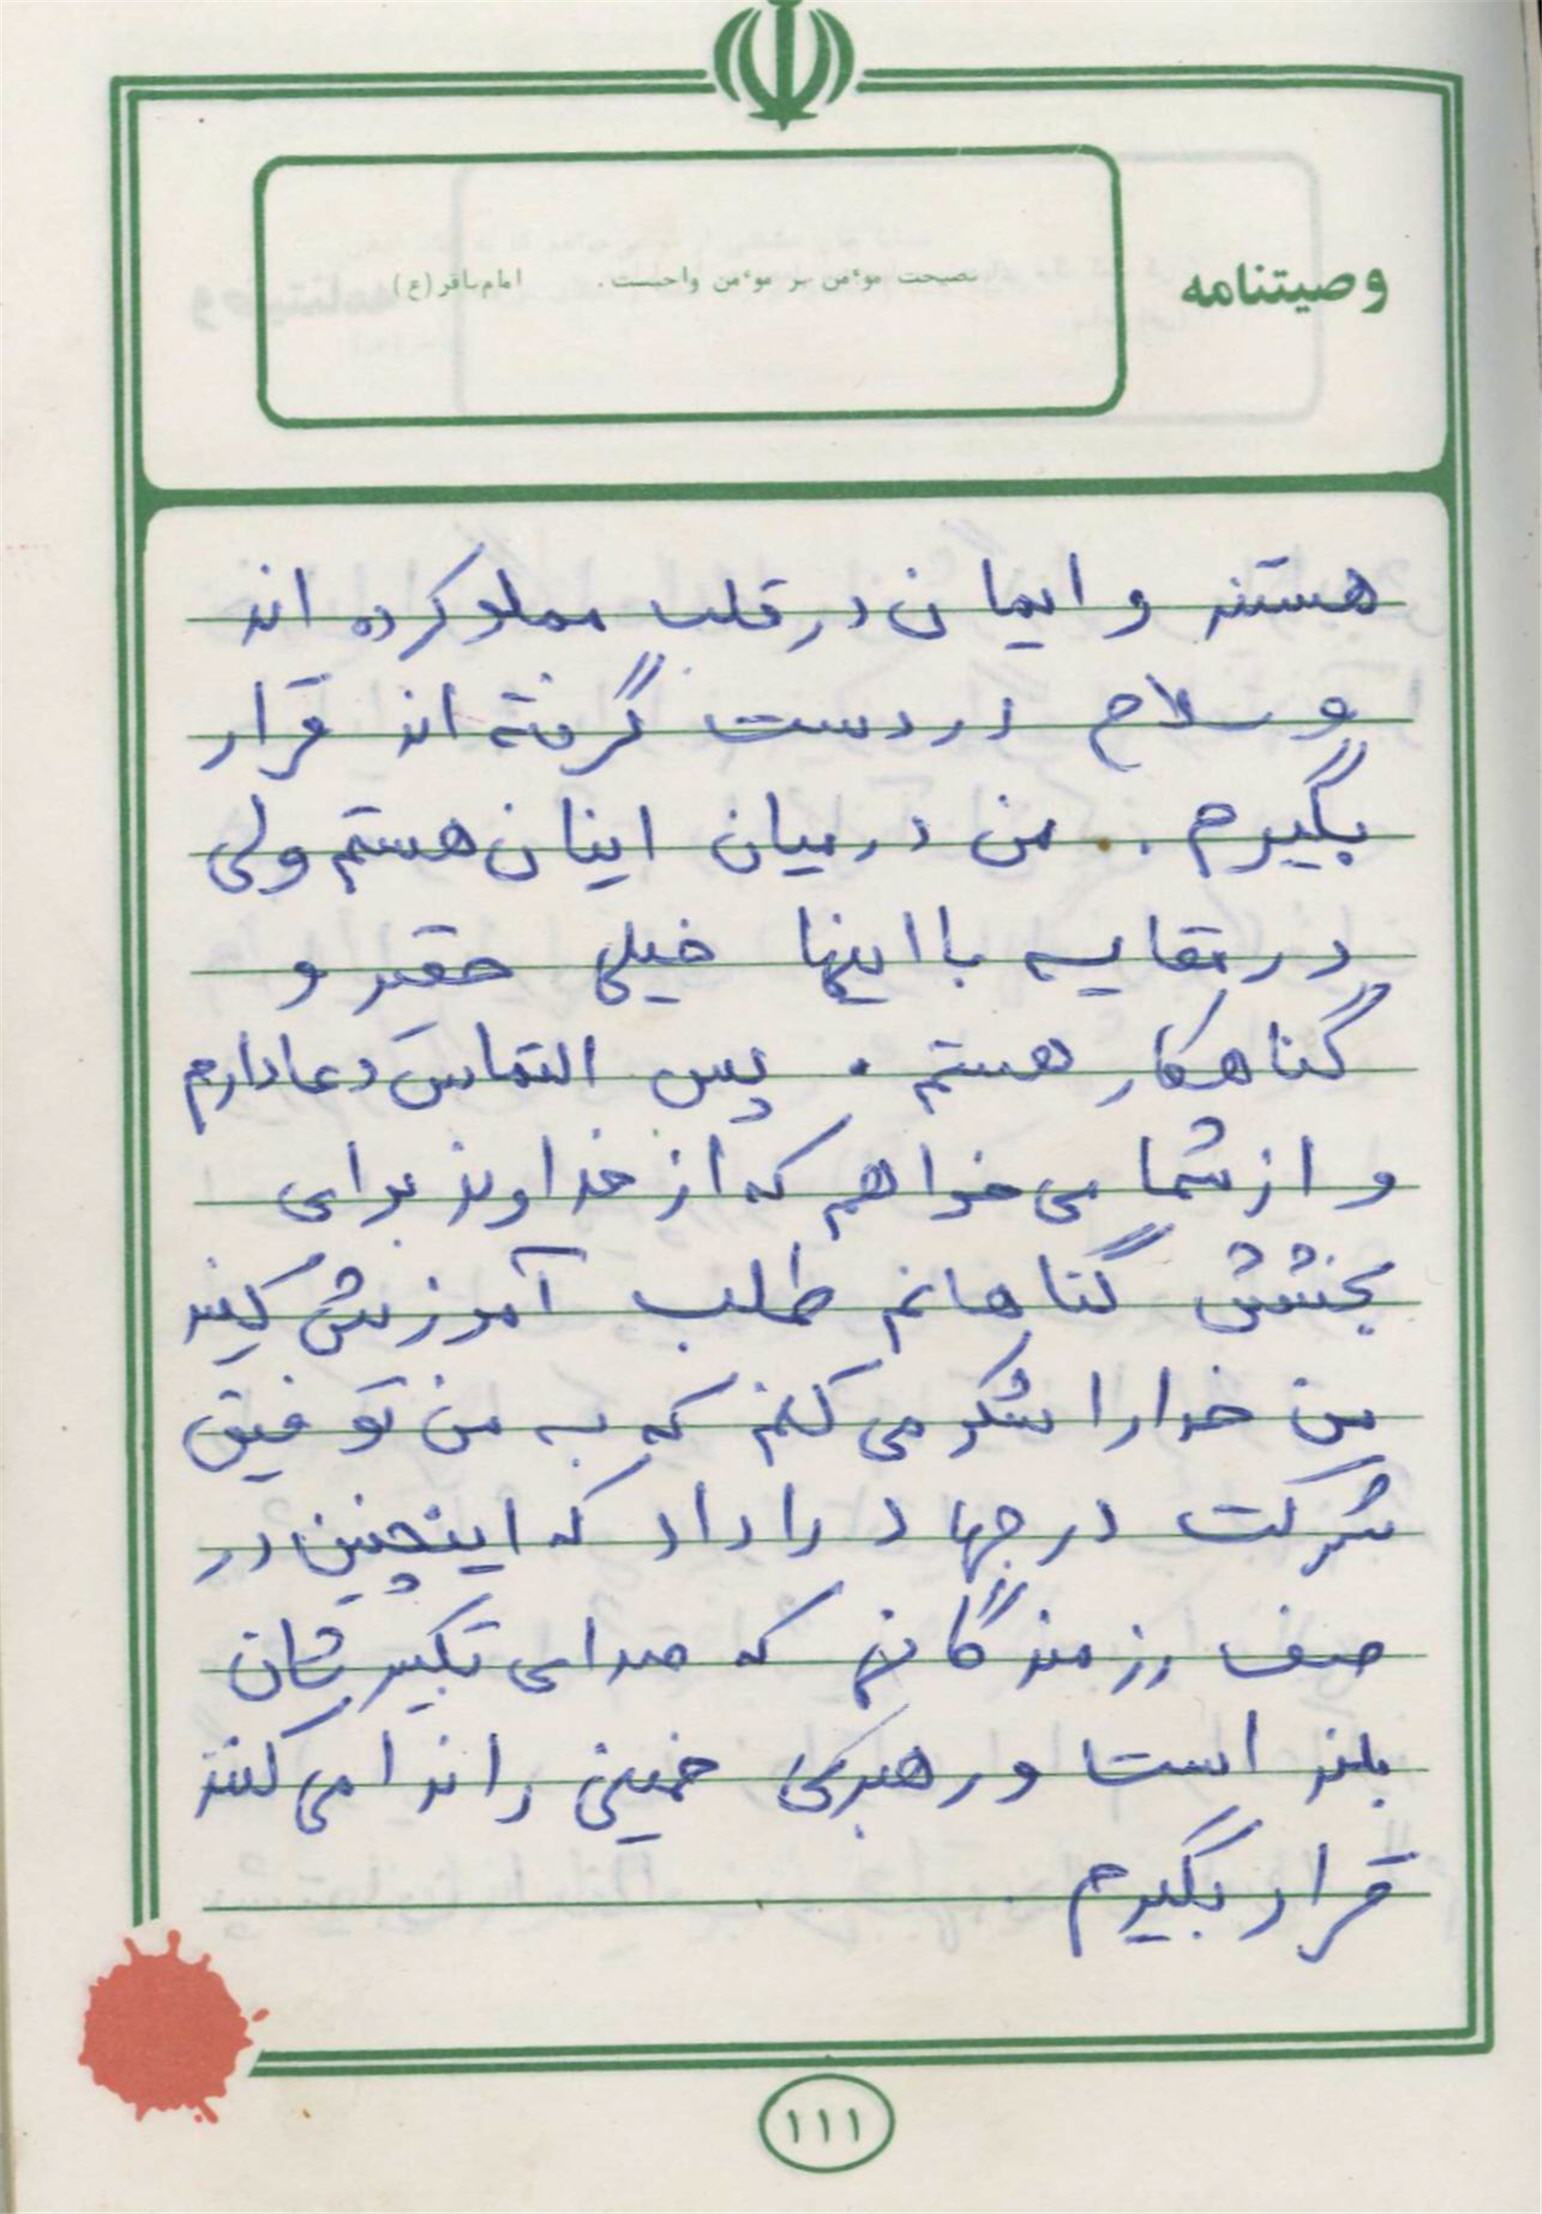 وصیتنامه
نصیحت موءمن بر موءمن واجبست. امام باقر (ع)
هستند و ایمان در قلب مملو کرده اند
و سلاح در دست گرفته اند قرار
بگیرم . . من در میان اینان هستم ولی
در مقایسه با اینها خیلی حقیر و
گناهکار هستم . پس التماس دعا دارم
و از شما می خواهم که از خداوند برای
بخشش گناهانم طلب آموزش کنید
من خدا را شکر می کنم که به من توفیق
شرکت در جهاد را داد که اینچنین در
صف رزمندگانم که صدای تکبیرشان
بلند است و رهبری خمینی را ندا می کنند
قرار بگیرم
۱۱۱